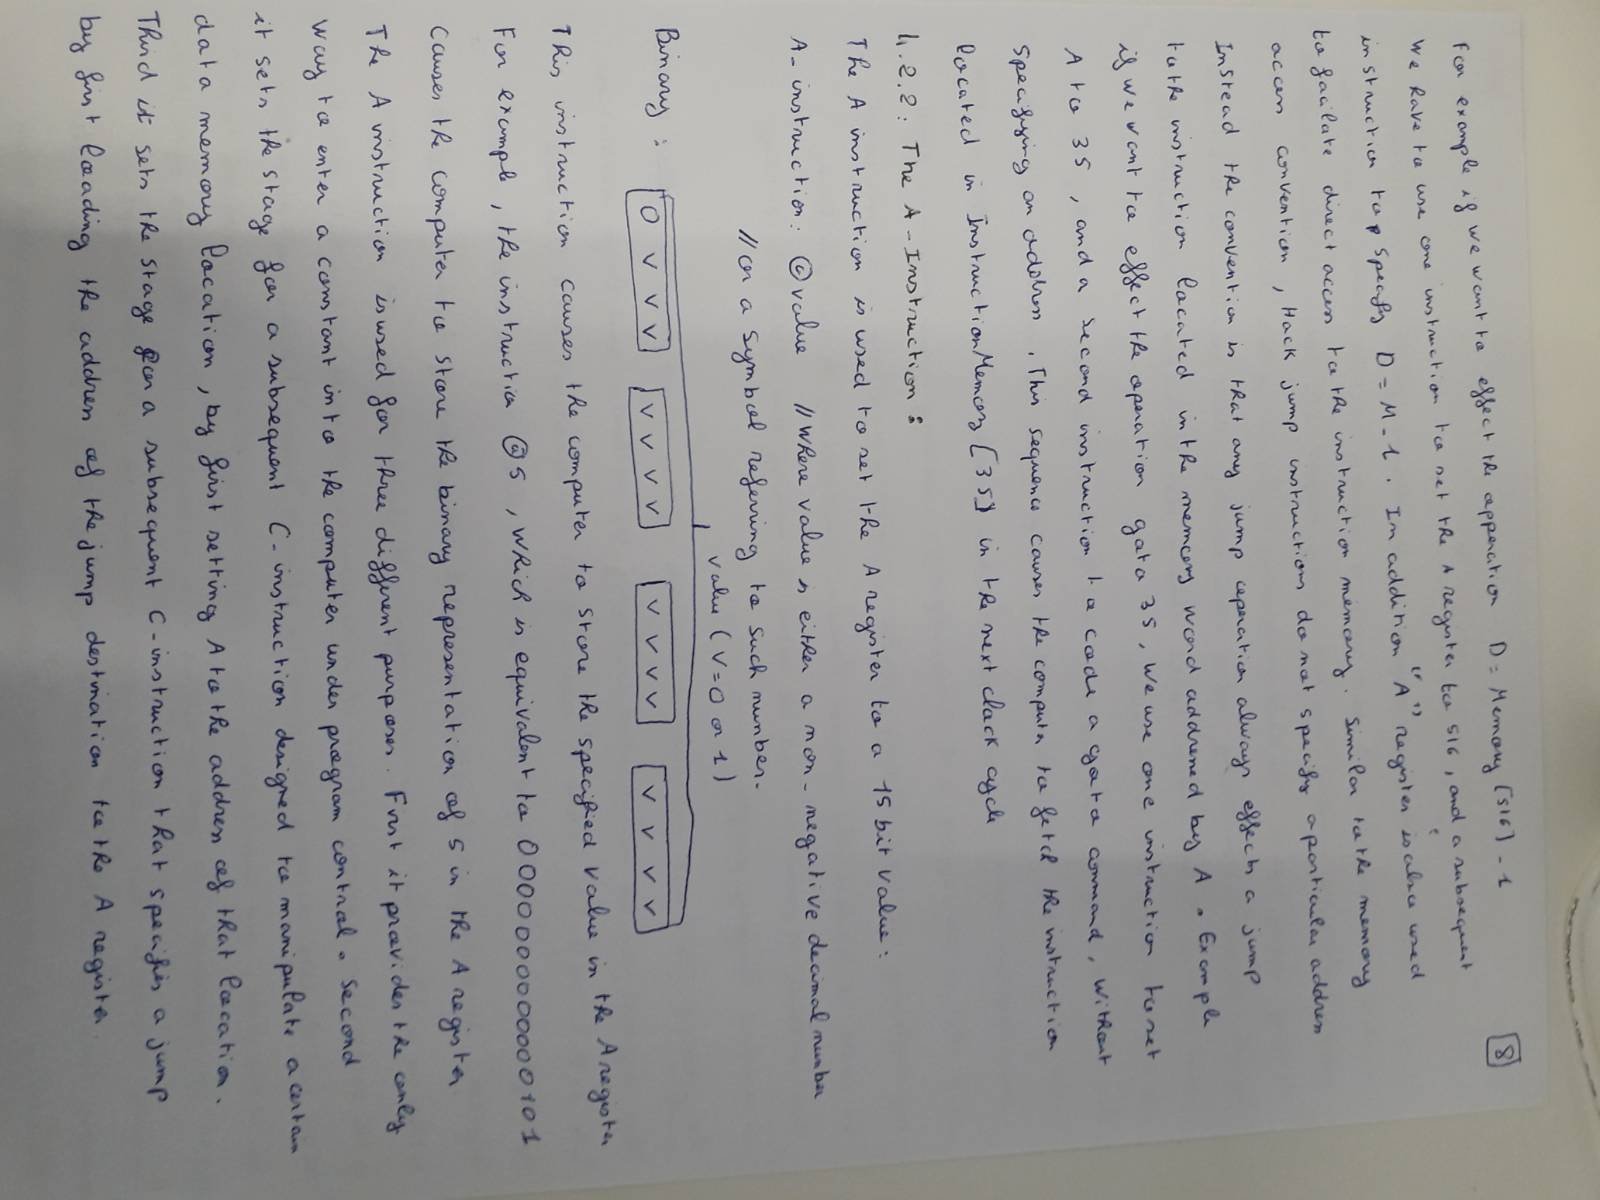 8
For example if we want to effect the apperation D = Memory [516] - 1
We have to use one instruction to set the A register to 516, and a subsequent
instruction top specify D = M - 1. In addition "A" register is also used
to facilate direct access to the instruction memory. Similar to the memory
access convention, Hack jump instructions do not specify a particular address
Instead the convention is that any jump operation always effects a jump
to the instruction located in the memory word addressed by A. Example
if we want to effect the operation goto 35, we use one instruction to set
A to 35, and a second instruction to code a goto command, without
specifying an address. This sequence causes the computer to fetch the instruction
located in InstructionMemory [35] in the next clock cycle
4.2.2: The A-Instruction:
The A instruction is used to set the A register to a 15 bit value:
A-instruction: @value // Where value is either a non-negative decimal number
// or a symbol referring to such number.
value (v = 0 or 1)
Binary: 0 v v v v v v v v v v v v v v v
This instruction causes the computer to store the specified value in the A register
For example, the instruction @5, which is equivalent to 0000000000000101
causes the computer to store the binary representation of 5 in the A register
The A instruction is used for three different purposes. First it provides the only
way to enter a constant into the computer under program control. Second
it sets the stage for a subsequent C-instruction designed to manipulate a certain
data memory location, by first setting A to the address of that location.
Third it sets the stage for a subsequent C-instruction that specifies a jump
by first loading the address of the jump destination to the A register.